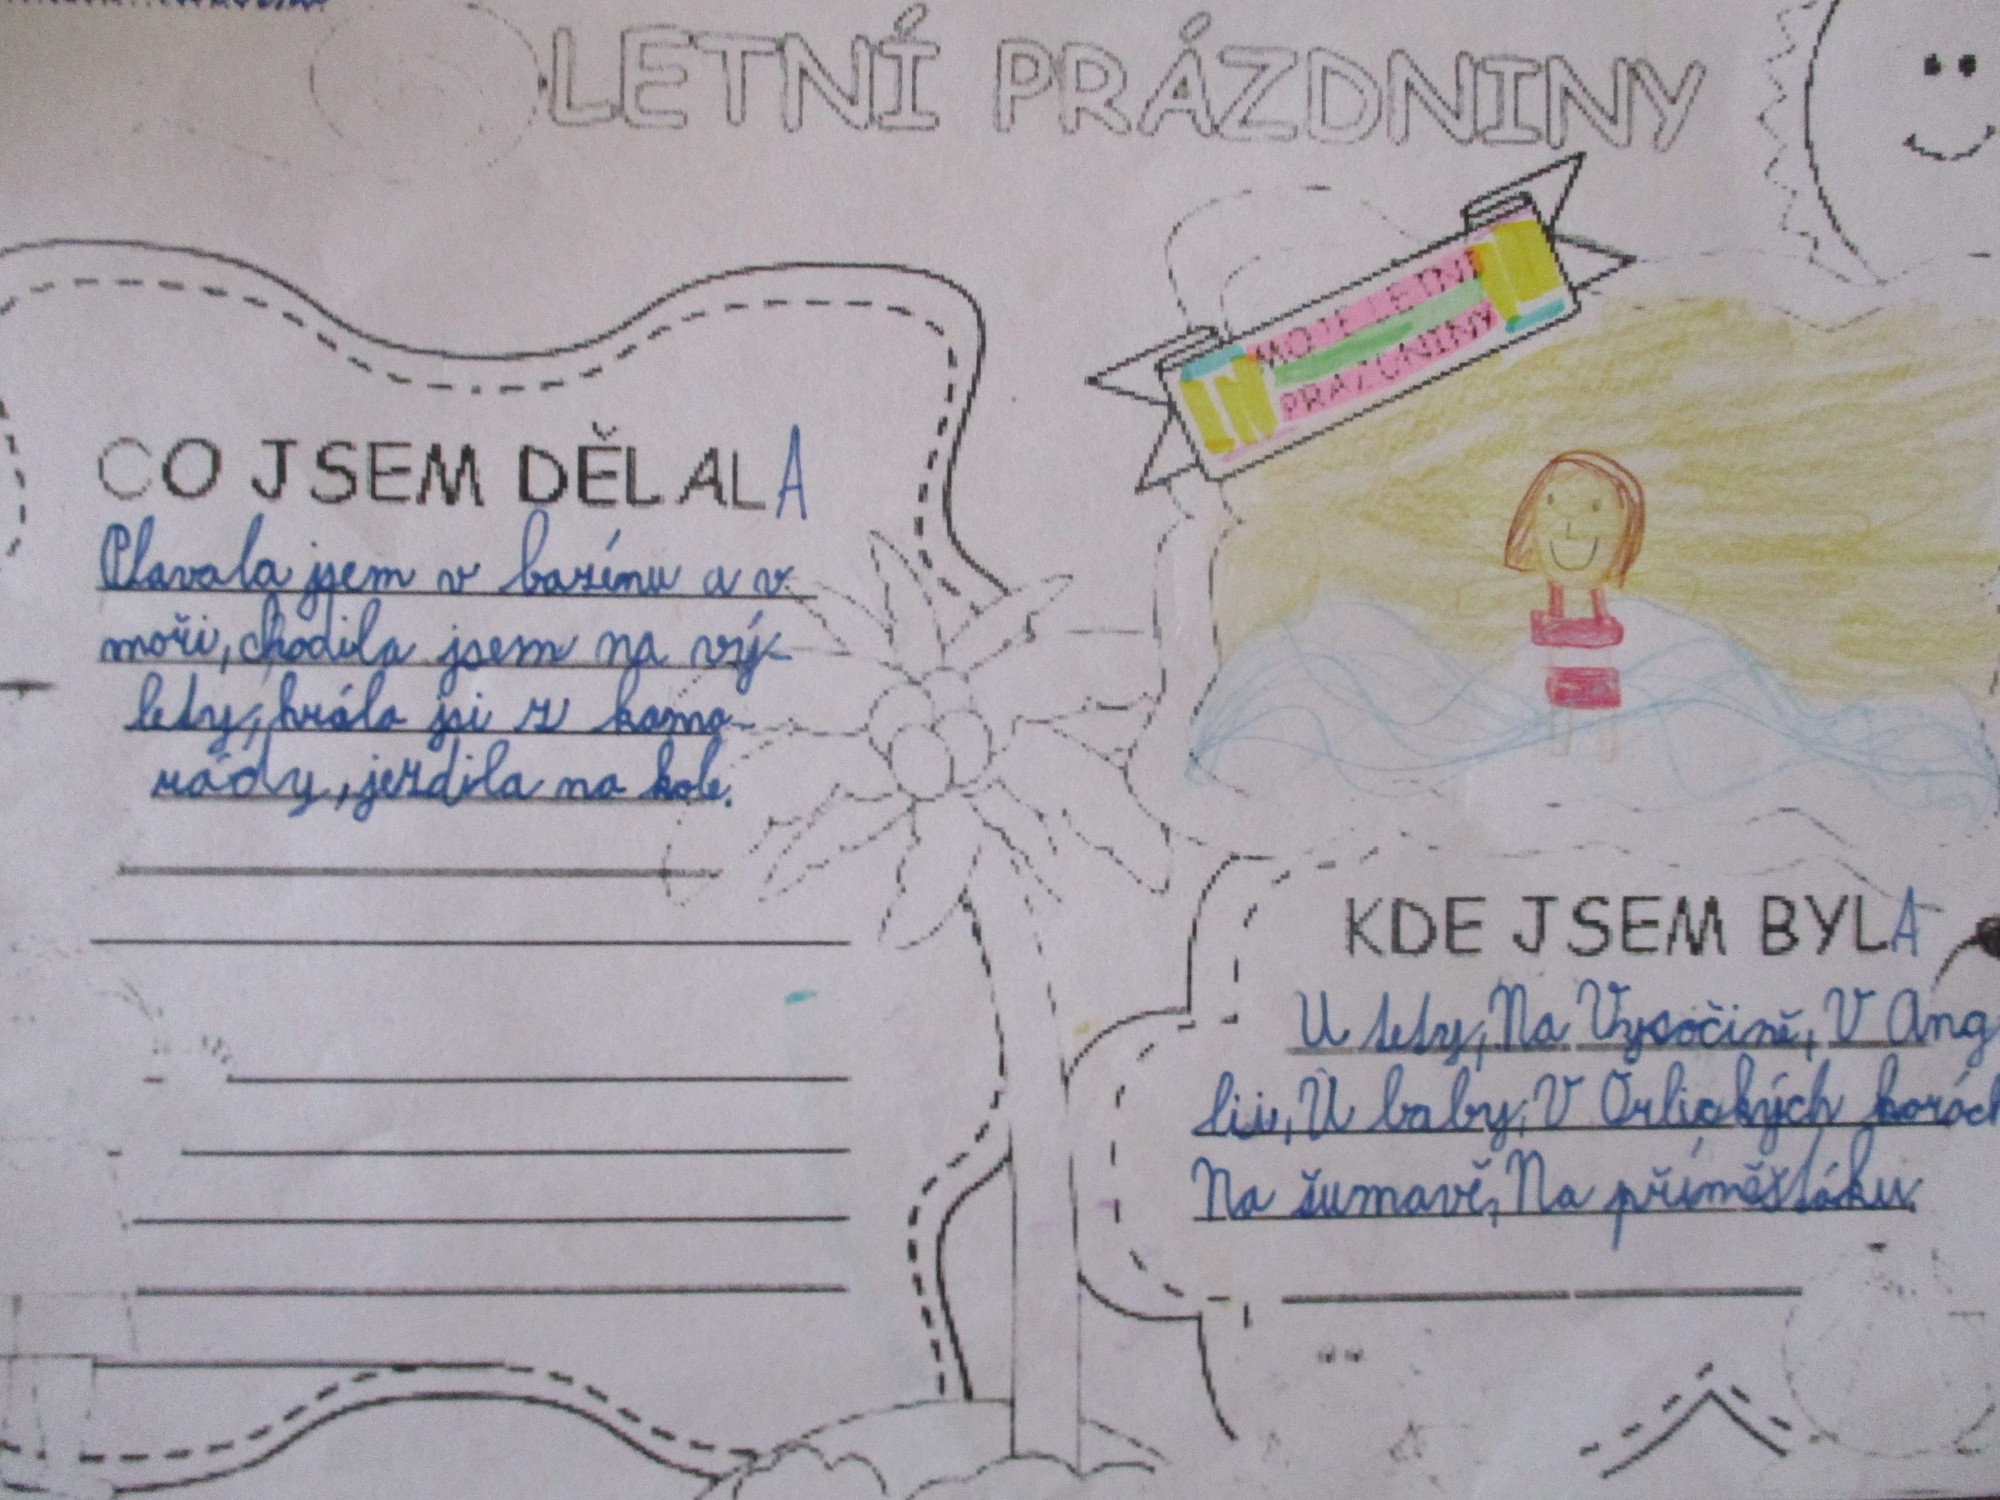 LETNÍ PRÁZDNINY
MOJE LETNÍ
PRÁZDNINY
CO JSEM DĚLALA
Plavala jsem v bazénu a v
moři, chodila jsem na vý-
lety, hrála jsi z kama-
rády, jezdila na kole.
KDE JSEM BYLA
U tety, Na Vysočině, V Ang
lii, U baby, V Orlických horách
Na šumavě, Na příměšťáku